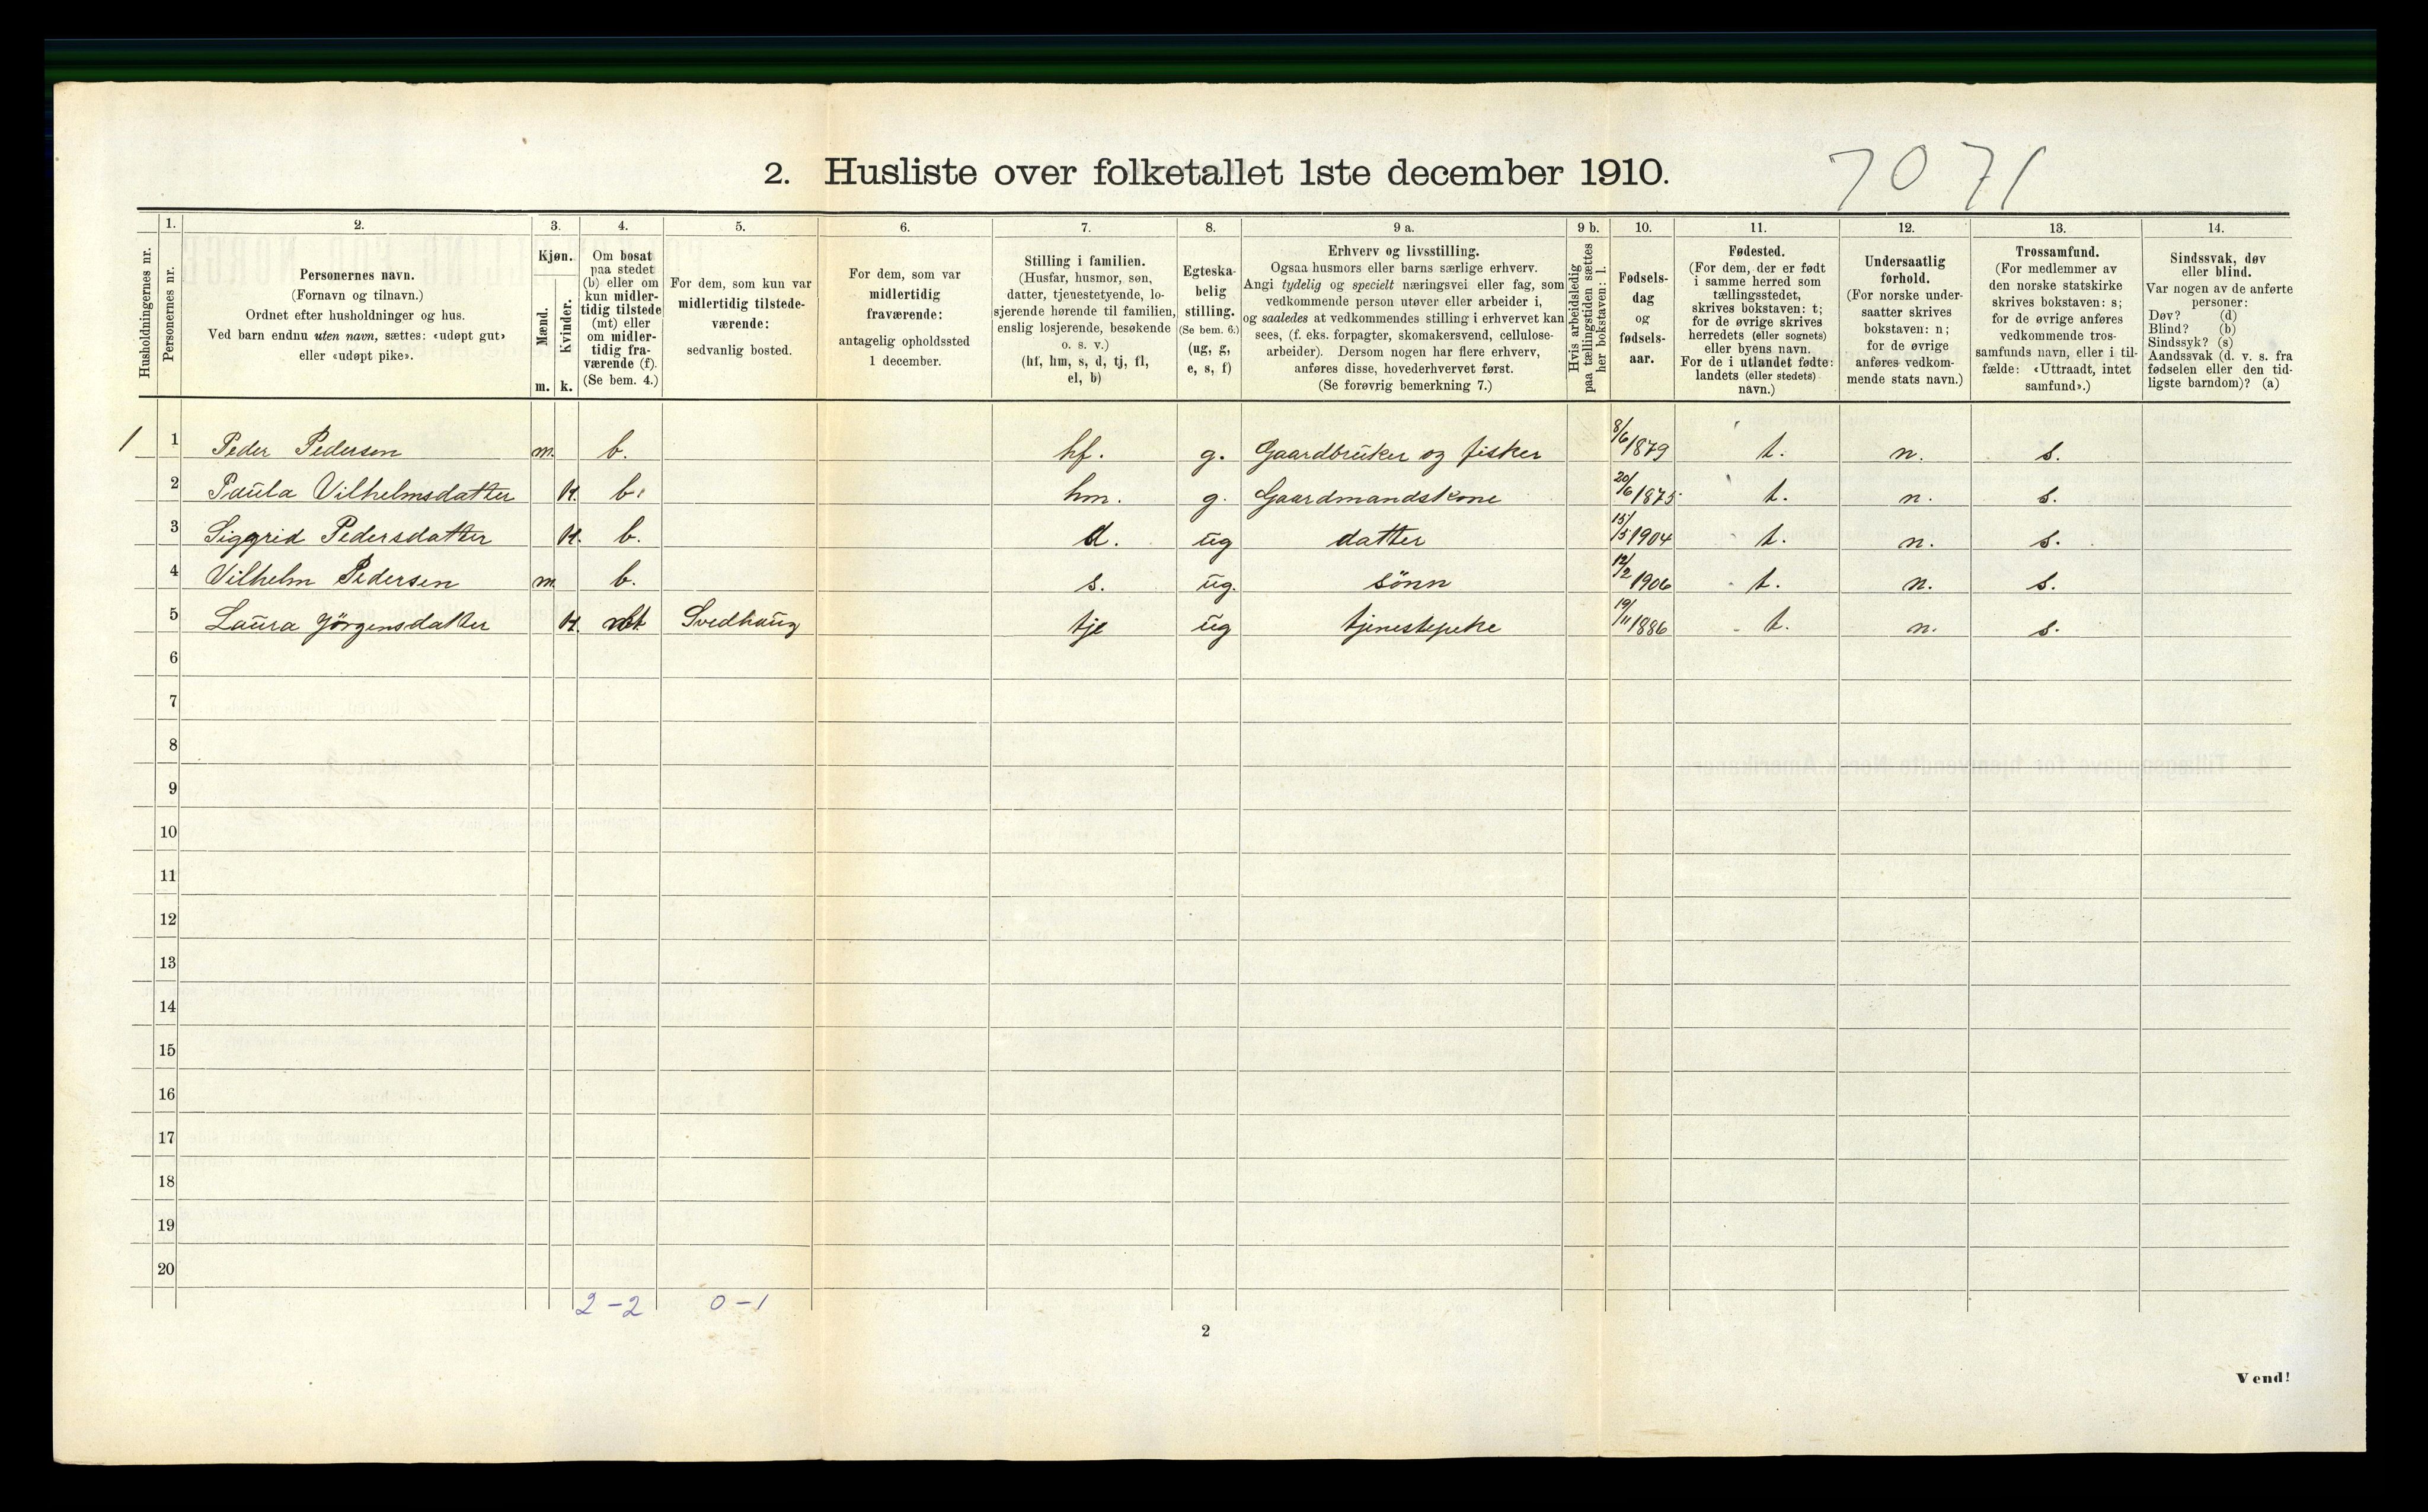 2. Husliste over folketallet 1ste december 1910.
7071
Husholdningernes nr.
1.
Personernes nr.
2.
Personernes navn.
(Fornavn og tilnavn.)
Ordnet efter husholdninger og hus.
Ved barn endnu uten navn, sættes: «udøpt gut»
eller «udøpt pike».
3.
Kjøn.
Mænd.
Kvinder.
m. k.
4.
Om bosat
paa stedet
(b) eller om
kun midler-
tidig tilstede
(mt) eller
om midler-
tidig fra-
værende (f).
(Se bem. 4.)
5.
For dem, som kun var
midlertidig tilstede-
værende:
sedvanlig bosted.
6.
For dem, som var
midlertidig
fraværende:
antagelig opholdssted
1 december.
7.
Stilling i familien.
(Husfar, husmor, søn,
datter, tjenestetyende, lo-
sjerende hørende til familien,
enslig losjerende, besøkende
o. s. v.)
(hf, hm, s, d, tj, fl,
el, b)
8.
Egteska-
belig
stilling.
(Se bem. 6.)
(ug, g,
e, s, f)
9 a.
Erhverv og livsstilling.
Ogsaa husmors eller barns særlige erhverv.
Angi tydelig og specielt næringsvei eller fag, som
vedkommende person utøver eller arbeider i,
og saaledes at vedkommendes stilling i erhvervet kan
sees, (f. eks. forpagter, skomakersvend, cellulose-
arbeider). Dersom nogen har flere erhverv,
anføres disse, hovederhvervet først.
(Se forøvrig bemerkning 7.)
9 b.
Hvis arbeidsledig
paa tællingstiden sættes
her bokstaven: l.
10.
Fødsels-
dag
og
fødsels-
aar.
11.
Fødested.
(For dem, der er født
i samme herred som
tællingsstedet,
skrives bokstaven: t;
for de øvrige skrives
herredets (eller sognets)
eller byens navn.
For de i utlandet fødte:
landets (eller stedets)
navn.)
12.
Undersaatlig
forhold.
(For norske under-
saatter skrives
bokstaven: n;
for de øvrige
anføres vedkom-
mende stats navn.)
13.
Trossamfund.
(For medlemmer av
den norske statskirke
skrives bokstaven: s;
for de øvrige anføres
vedkommende tros-
samfunds navn, eller i til-
fælde: «Uttraadt, intet
samfund».)
14.
Sindssvak, døv
eller blind.
Var nogen av de anførte
personer:
Døv? (d)
Blind? (b)
Sindssyk? (s)
Aandssvak (d. v. s. fra
fødselen eller den tid-
ligste barndom)? (a)
1 1 Peder Pedersen m. b. hf. g. Gaardbruker og fisker 8/6 1879 t. n. s.
2 Paula Vilhelmsdatter k. b. hm. g. Gaardmandskone 20/6 1875 t. n. s.
3 Siggrid Pedersdatter k. b. d. ug datter 15/5 1904 t. n. s.
4 Vilhelm Pedersen m. b. s. ug. sönn 12/2 1906 t. n. s.
5 Laura Jörgensdatter k. mt Svedhaug tje ug tjenestepeke 19/11 1886 t. n. s.
6
7
8
9
10
11
12
13
14
15
16
17
18
19
20
2-2 0-1
2
Vend!